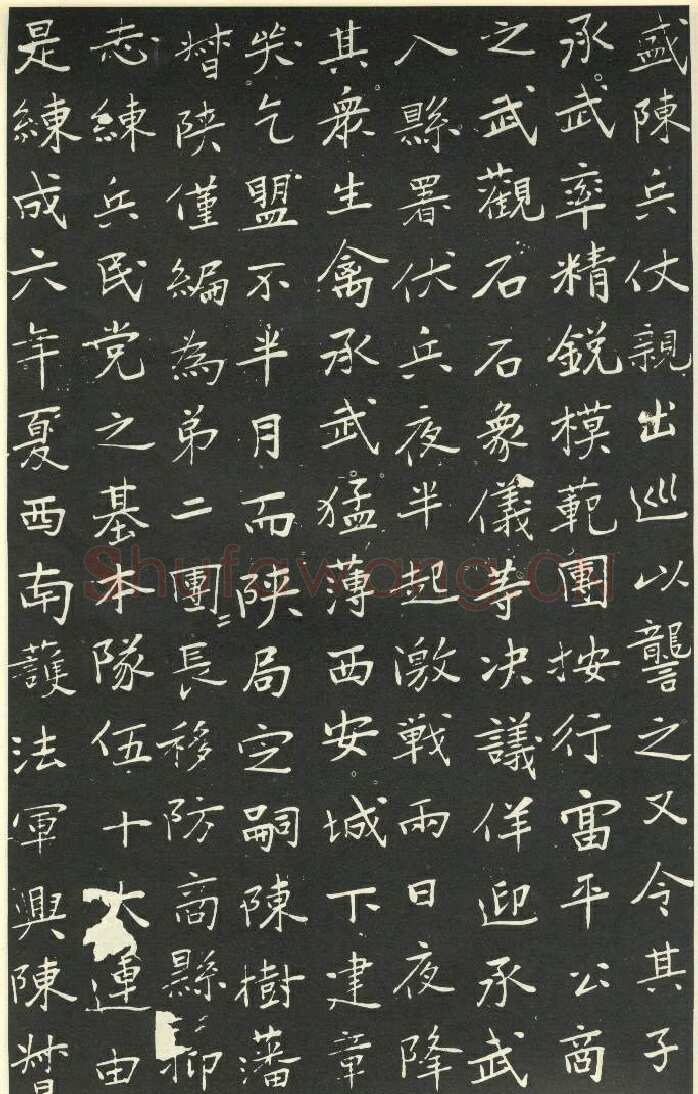 盛陳兵仗親出巡以讋之又令其子
承武率精銳模範團按行富平公商
之武觀石石象儀等决議佯迎承武
入縣署伏兵夜半起激戰兩日夜降
其衆生禽承武猛薄西安城下建章
乞盟不半月而陕局定嗣陳樹藩
督陕僅編為弟二團〻長移防商縣〻抑
志練兵民党之基本隊伍十大連由
是練成六年夏西南護法軍興陳督
Shufawang.CN